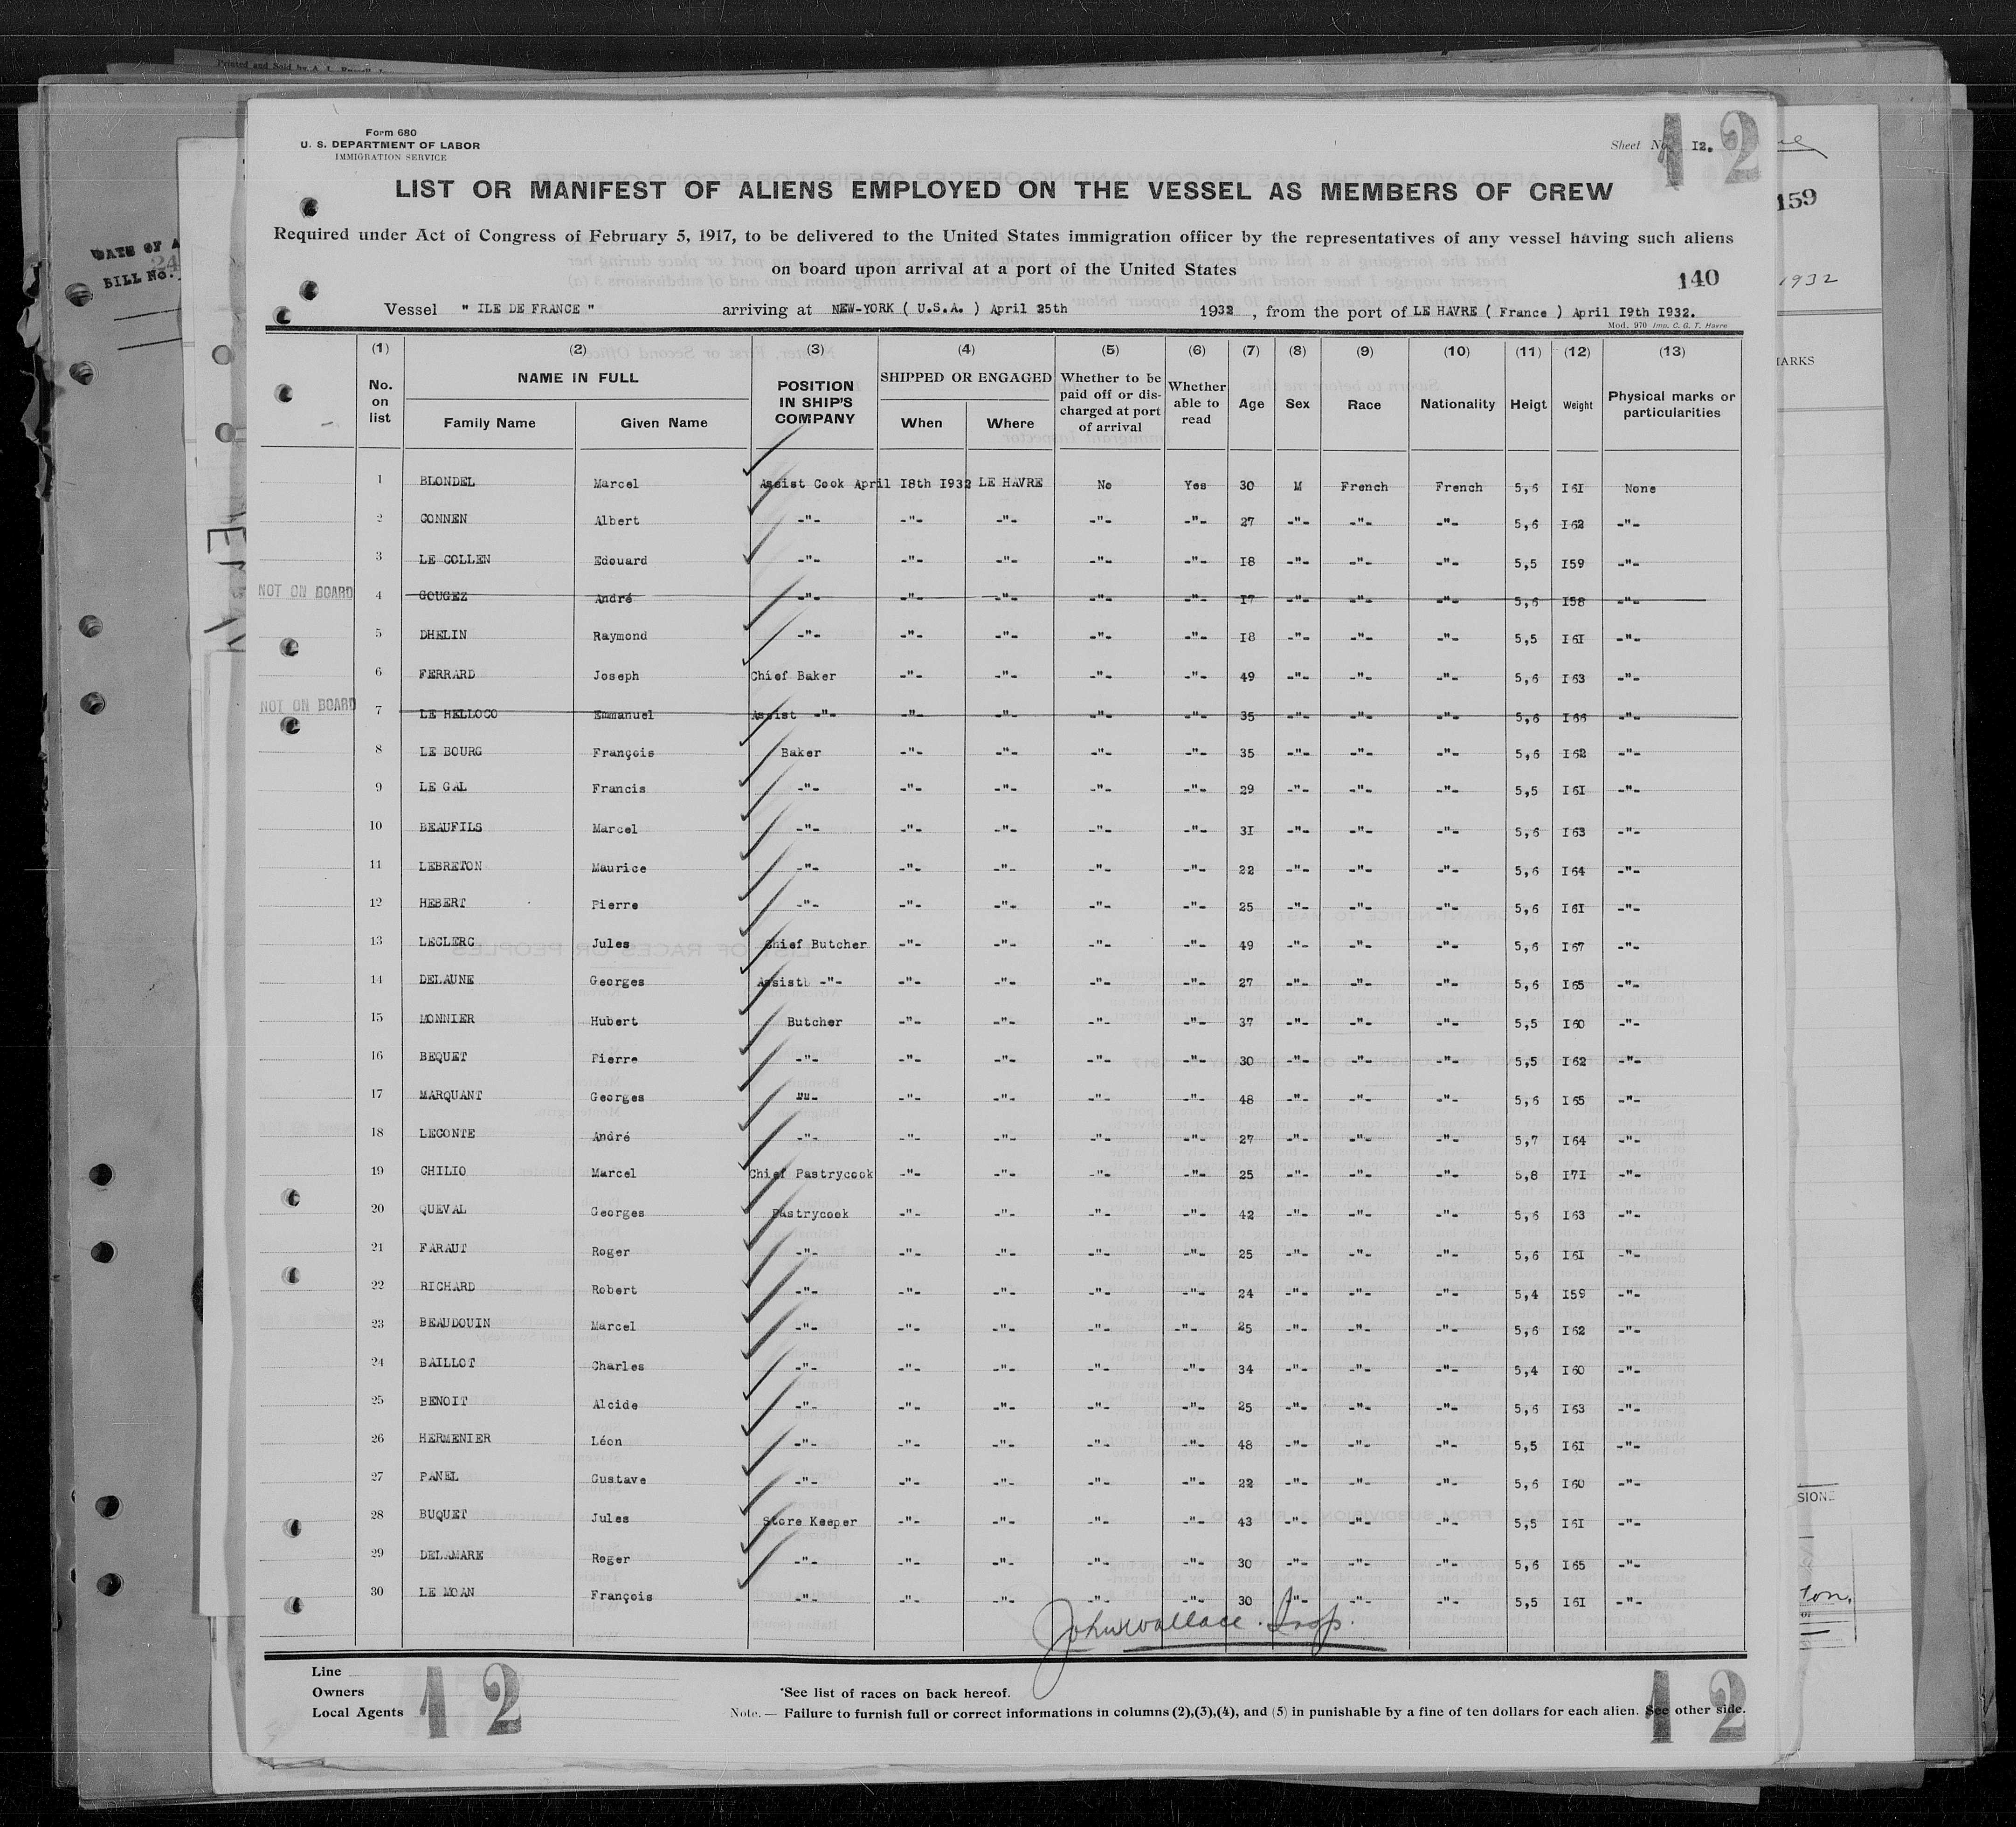 Printed and Sold by A. L. Russell
Form 680
U. S. DEPARTMENT OF LABOR
IMMIGRATION SERVICE
Sheet No. I2.
12
LIST OR MANIFEST OF ALIENS EMPLOYED ON THE VESSEL AS MEMBERS OF CREW
159
Required under Act of Congress of February 5, 1917, to be delivered to the United States immigration officer by the representatives of any vessel having such aliens
on board upon arrival at a port of the United States
140
1932
DATE OF A
24
BILL No.
Vessel " ILE DE FRANCE " arriving at NEW-YORK ( U.S.A. ) April 25th 1932 , from the port of LE HAVRE ( France ) April I9th I932.
Mod. 970 Imp. C. G. T. Havre
(1) (2) (3) (4) (5) (6) (7) (8) (9) (10) (11) (12) (13)
No. on list NAME IN FULL Family Name Given Name POSITION IN SHIP'S COMPANY SHIPPED OR ENGAGED When Where Whether to be paid off or discharged at port of arrival Whether able to read Age Sex Race Nationality Heigt Weight Physical marks or particularities
ARKS
1 BLONDEL Marcel Assist Cook April I8th I932 LE HAVRE No Yes 30 M French French 5,6 I6I None
2 CONNEN Albert -"- -"- -"- -"- -"- 27 -"- -"- -"- 5,6 I62 -"-
3 LE COLLEN Edouard -"- -"- -"- -"- -"- I8 -"- -"- -"- 5,5 I59 -"-
NOT ON BOARD 4 GOUGEZ André -"- -"- -"- -"- -"- I7 -"- -"- -"- 5,6 I58 -"-
5 DHELIN Raymond -"- -"- -"- -"- -"- I8 -"- -"- -"- 5,5 I6I -"-
6 FERRARD Joseph Chief Baker -"- -"- -"- -"- 49 -"- -"- -"- 5,6 I63 -"-
NOT ON BOARD 7 LE HELLOCO Emmanuel Assist -"- -"- -"- -"- -"- 35 -"- -"- -"- 5,6 I66 -"-
8 LE BOURG François Baker -"- -"- -"- -"- 35 -"- -"- -"- 5,6 I62 -"-
9 LE GAL Francis -"- -"- -"- -"- -"- 29 -"- -"- -"- 5,5 I6I -"-
10 BEAUFILS Marcel -"- -"- -"- -"- -"- 3I -"- -"- -"- 5,6 I63 -"-
11 LEBRETON Maurice -"- -"- -"- -"- -"- 22 -"- -"- -"- 5,6 I64 -"-
12 HEBERT Pierre -"- -"- -"- -"- -"- 25 -"- -"- -"- 5,6 I6I -"-
13 LECLERC Jules Chief Butcher -"- -"- -"- -"- 49 -"- -"- -"- 5,6 I67 -"-
14 DELAUNE Georges Assist -"- -"- -"- -"- -"- 27 -"- -"- -"- 5,6 I65 -"-
15 MONNIER Hubert Butcher -"- -"- -"- -"- 37 -"- -"- -"- 5,5 I60 -"-
16 BEQUET Pierre -"- -"- -"- -"- -"- 30 -"- -"- -"- 5,5 I62 -"-
17 MARQUANT Georges ""- -"- -"- -"- -"- 48 -"- -"- -"- 5,6 I65 -"-
18 LECONTE André -"- -"- -"- -"- -"- 27 -"- -"- -"- 5,7 I64 -"-
19 CHILIO Marcel Chief Pastrycook -"- -"- -"- -"- 25 -"- -"- -"- 5,8 I7I -"-
20 QUEVAL Georges Pastrycook -"- -"- -"- -"- 42 -"- -"- -"- 5,6 I63 -"-
21 FARAUT Roger -"- -"- -"- -"- -"- 25 -"- -"- -"- 5,6 I6I -"-
22 RICHARD Robert -"- -"- -"- -"- -"- 24 -"- -"- -"- 5,4 I59 -"-
23 BEAUDOUIN Marcel -"- -"- -"- -"- -"- 25 -"- -"- -"- 5,6 I62 -"-
24 BAILLOT Charles -"- -"- -"- -"- -"- 34 -"- -"- -"- 5,4 I60 -"-
25 BENOIT Alcide -"- -"- -"- -"- -"- 25 -"- -"- -"- 5,6 I63 -"-
26 HERMENIER Léon -"- -"- -"- -"- -"- 48 -"- -"- -"- 5,5 I6I -"-
27 PANEL Gustave -"- -"- -"- -"- -"- 22 -"- -"- -"- 5,6 I60 -"-
28 BUQUET Jules Store Keeper -"- -"- -"- -"- 43 -"- -"- -"- 5,5 I6I -"-
29 DELAMARE Roger -"- -"- -"- -"- -"- 30 -"- -"- -"- 5,6 I65 -"-
30 LE MOAN François -"- -"- -"- -"- -"- 30 -"- -"- -"- 5,5 I6I -"-
John Wallace. Insp.
Line
Owners
Local Agents
12
*See list of races on back hereof.
Note. — Failure to furnish full or correct informations in columns (2),(3),(4), and (5) in punishable by a fine of ten dollars for each alien. See other side.
12